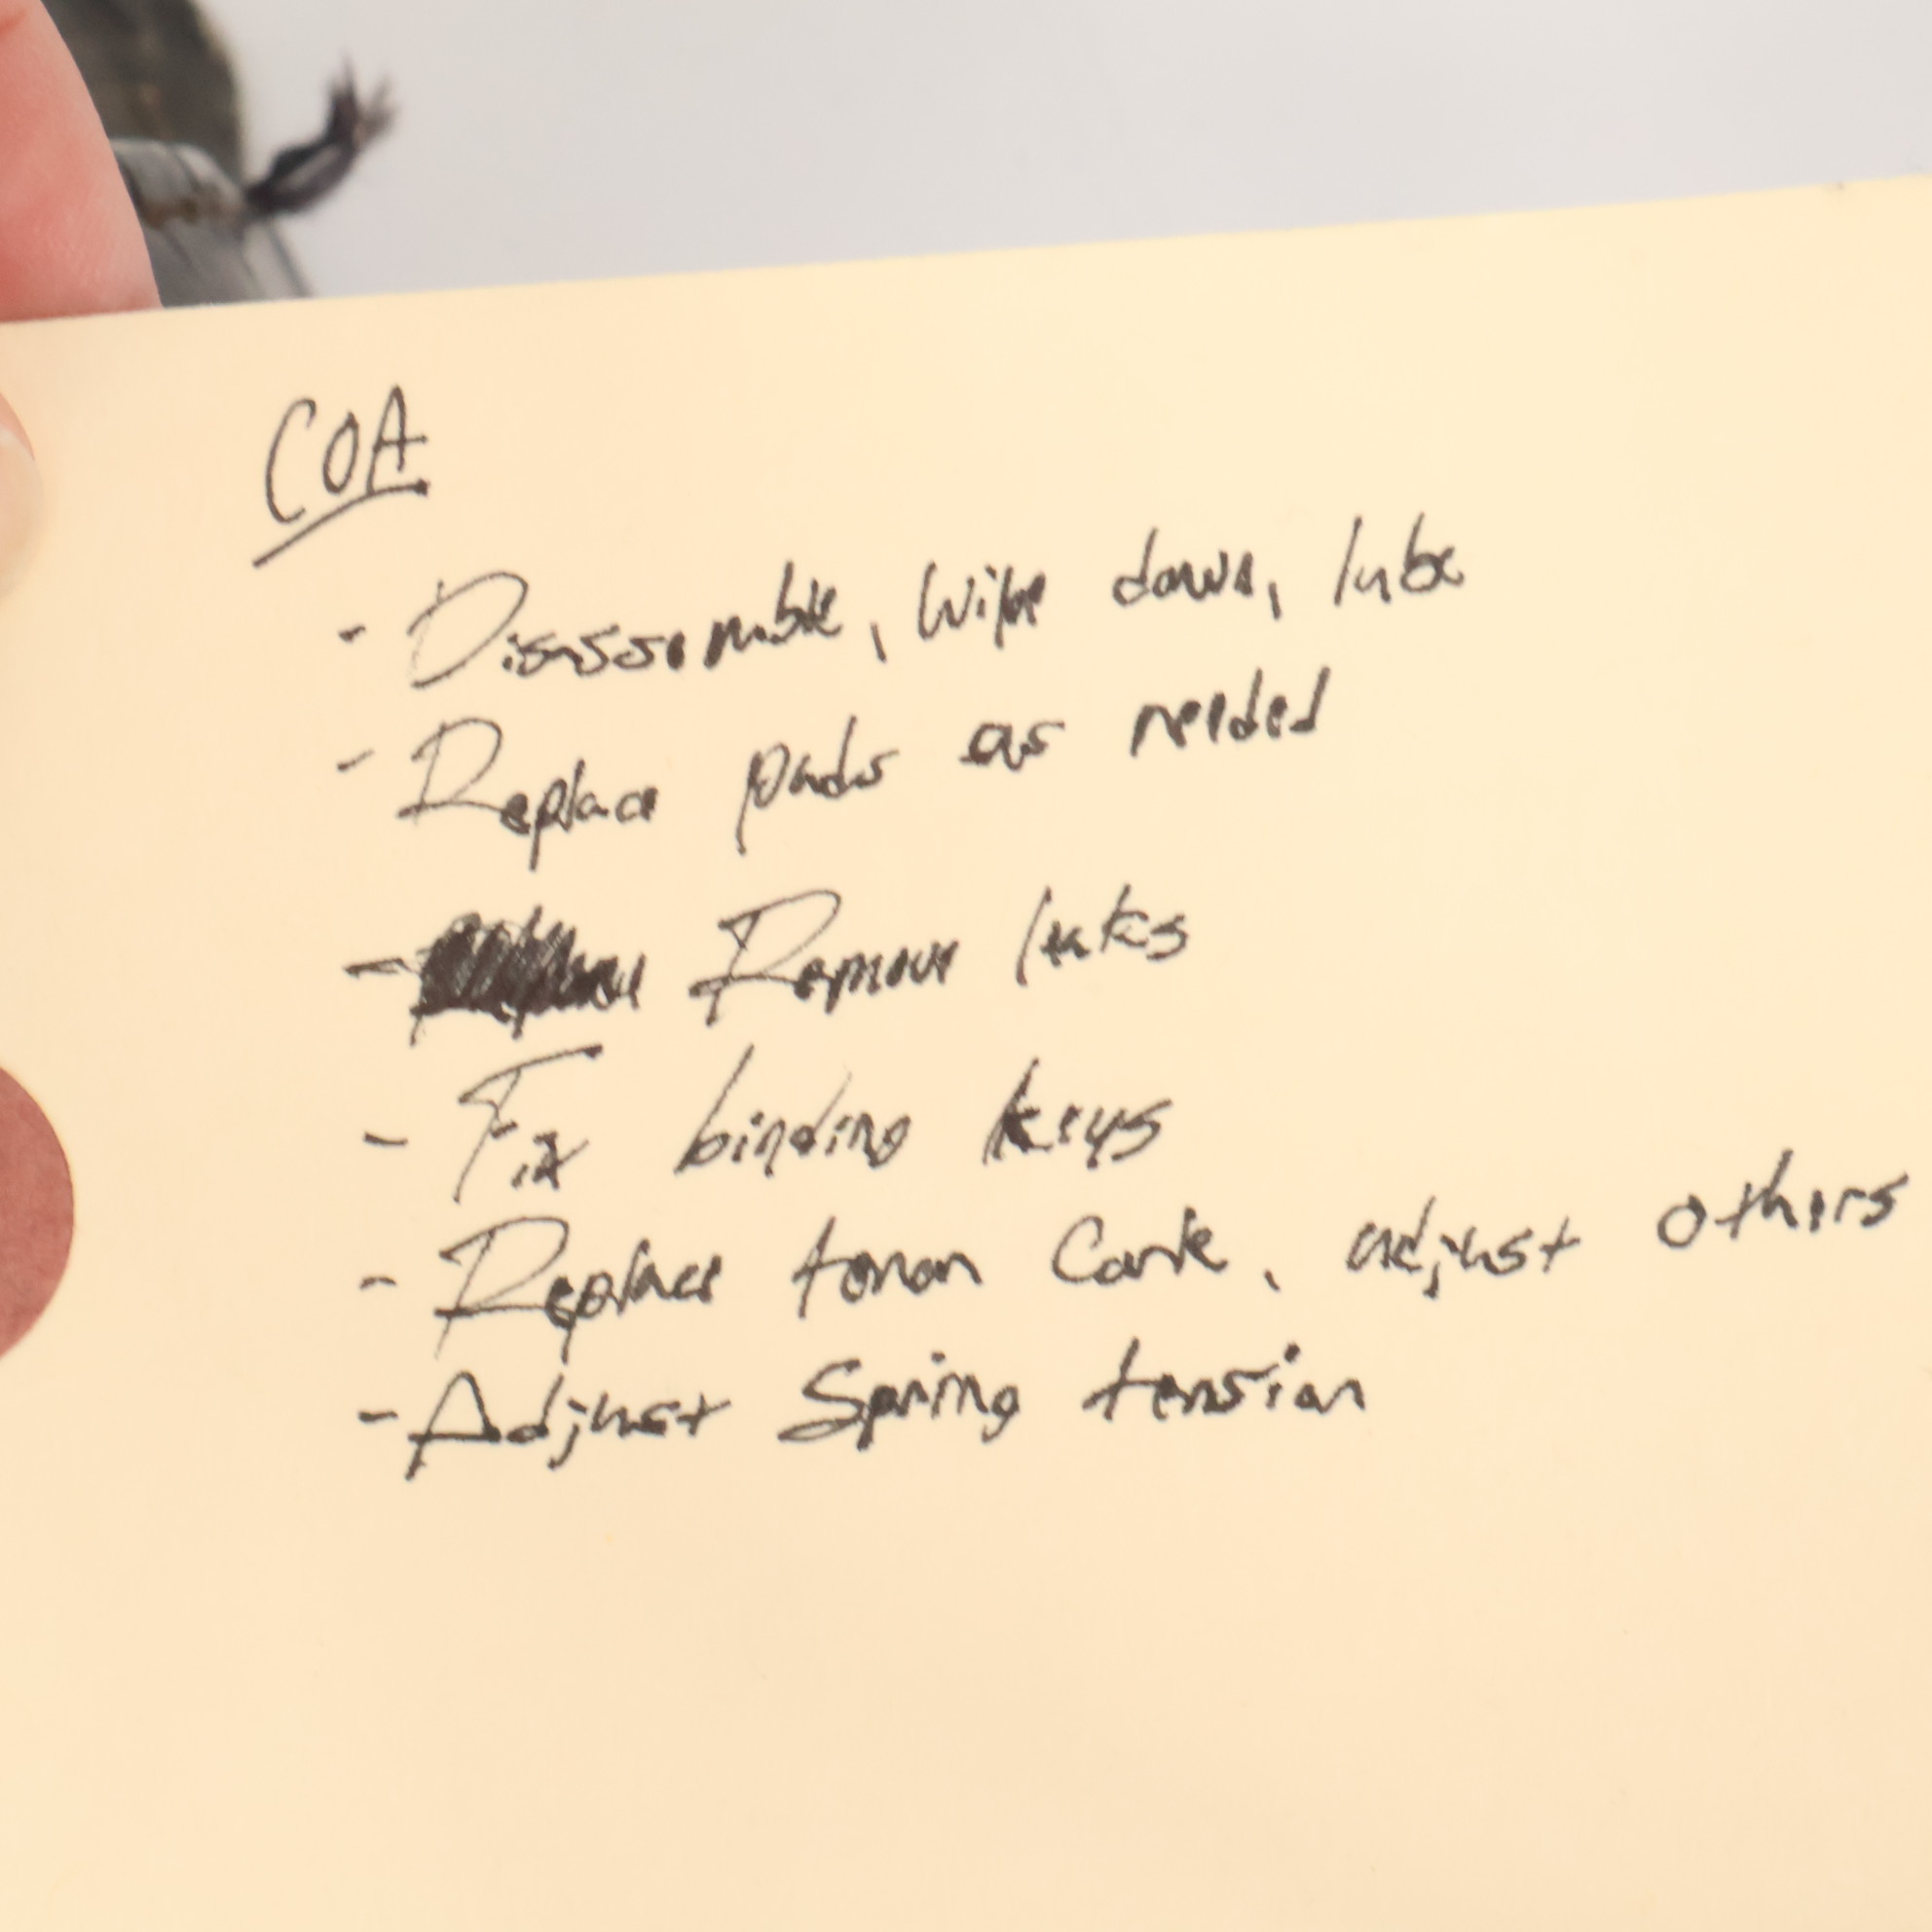 COA
- Disassemble, Wipe down, lube
- Replace pads as needed
- Remove leaks
- Fix binding keys
- Replace tenon Cork, adjust others
- Adjust Spring tension